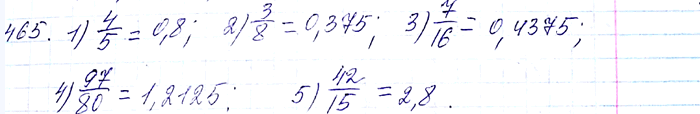 465. 1) 4/5 = 0,8; 2) 3/8 = 0,375; 3) 7/16 = 0,4375;
4) 97/80 = 1,2125; 5) 42/15 = 2,8.